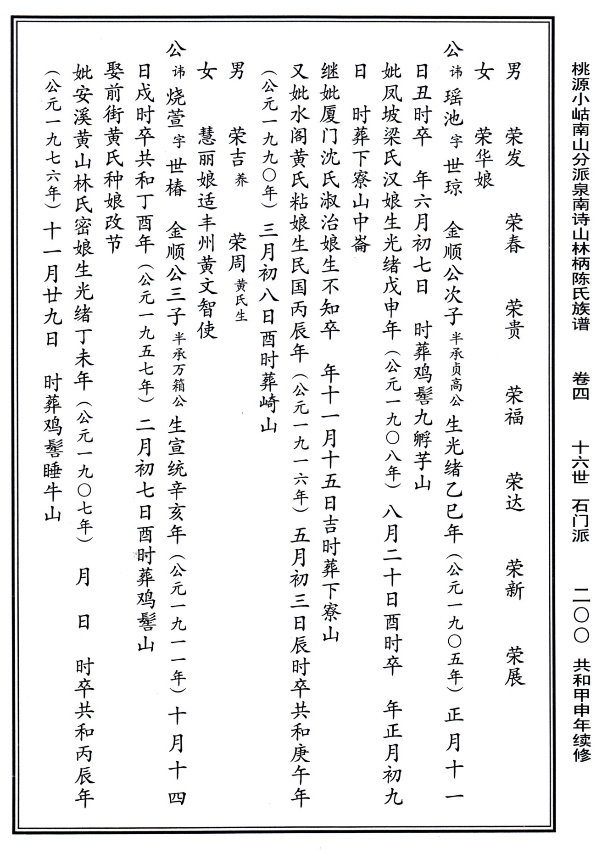 桃源小岵南山分派泉南诗山林柄陈氏族谱 卷四 十六世 石门派 二〇〇 共和甲申年续修
男 荣发 荣春 荣贵 荣福 荣达 荣新 荣展
女 荣华娘
公讳瑶池字世琼 金顺公次子半承贞高公生光绪乙巳年（公元一九〇五年）正月十一
日丑时卒 年六月初七日 时葬鸡髻九孵芋山
妣凤坡梁氏汉娘生光绪戊申年（公元一九〇八年）八月二十日酉时卒 年正月初九
日 时葬下寮山中崙
继妣厦门沈氏淑治娘生不知卒 年十一月十五日吉时葬下寮山
又妣水阁黄氏粘娘生民国丙辰年（公元一九一六年）五月初三日辰时卒共和庚午年
（公元一九九〇年）三月初八日酉时葬崎山
男 荣吉养 荣周黄氏生
女 慧丽娘适丰州黄文智使
公讳烧萱字世椿 金顺公三子半承万箱公生宣统辛亥年（公元一九一一年）十月十四
日戌时卒共和丁酉年（公元一九五七年）二月初七日酉时葬鸡髻山
娶前街黄氏种娘改节
妣安溪黄山林氏密娘生光绪丁未年（公元一九〇七年）月 日 时卒共和丙辰年
（公元一九七六年）十一月廿九日 时葬鸡髻睡牛山